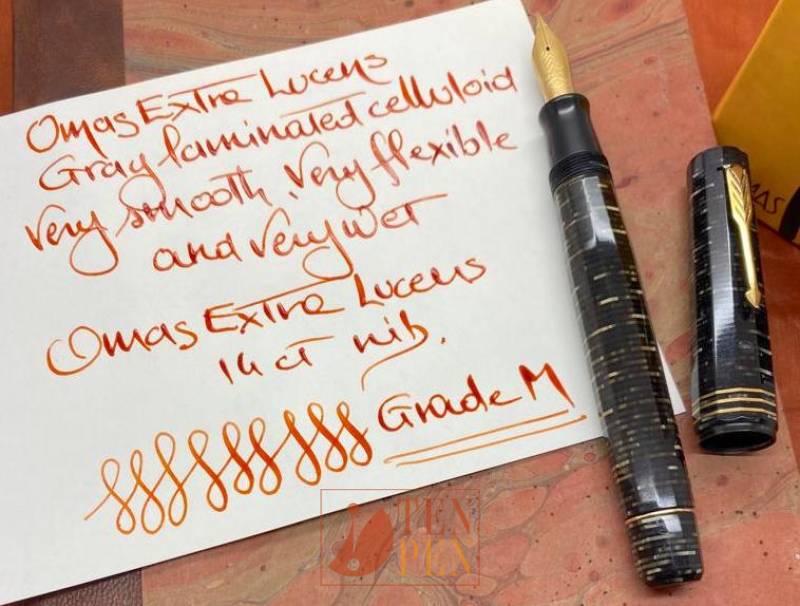 Omas Extra Lucens
Gray laminated celluloid
very smooth, very flexible
and very wet
Omas Extra Lucens
14 ct nib.
Grade M
TEN
PEN